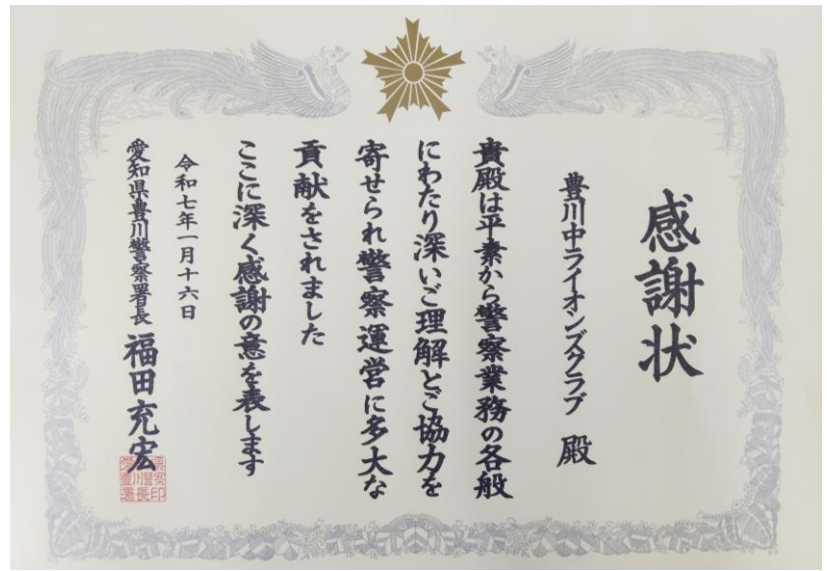 感謝状
豊川中ライオンズクラブ 殿
貴殿は平素から警察業務の各般
にわたり深いご理解とご協力を
寄せられ警察運営に多大な
貢献をされました
ここに深く感謝の意を表します
令和七年一月十六日
愛知県豊川警察署長 福田充宏